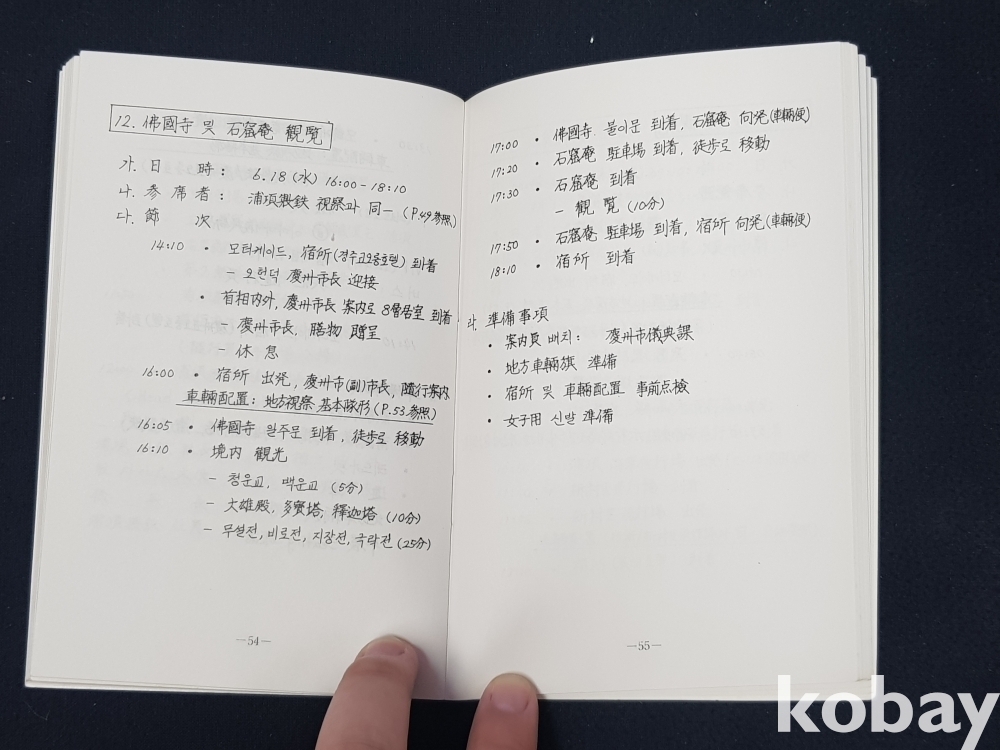 12. 佛國寺 및 石窟庵 觀覧
가. 日 時 : 6.18 (水) 16:00 - 18:10
나. 参席者 : 浦項製鉄 視察과 同一 (P.49参照)
다. 節 次
14:10 • 모터케이드, 宿所(경주코오롱호텔) 到着
- 오헌덕 慶州市長 迎接
• 首相内外, 慶州市長 案内로 8層居室 到着
- 慶州市長, 膳物 贈呈
- 休息
16:00 • 宿所 出発, 慶州市(副)市長, 隨行案内
車輛配置 : 地方視察 基本隊形 (P.53参照)
16:05 • 佛國寺 일주문 到着, 徒歩로 移動
16:10 • 境内 觀光
- 청운교, 백운교 (5分)
- 大雄殿, 多寶塔, 釋迦塔 (10分)
- 무설전, 비로전, 지장전, 극락전 (25分)
—54—
17:00 • 佛國寺 불이문 到着, 石窟庵 向発(車輛便)
17:20 • 石窟庵 駐車場 到着, 徒歩로 移動
17:30 • 石窟庵 到着
- 觀覧 (10分)
17:50 • 石窟庵 駐車場 到着, 宿所 向発(車輛便)
18:10 • 宿所 到着
라. 準備事項
• 案内員 배치 : 慶州市儀典課
• 地方車輛旗 準備
• 宿所 및 車輛配置 事前点檢
• 女子用 신발 準備
—55—
kobay